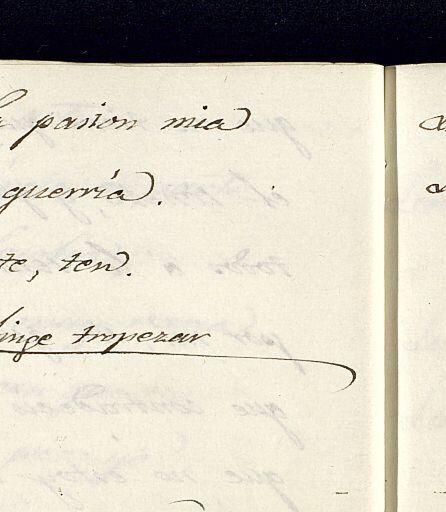 pasion mia
guerría.
te, ten.
finge tropezar